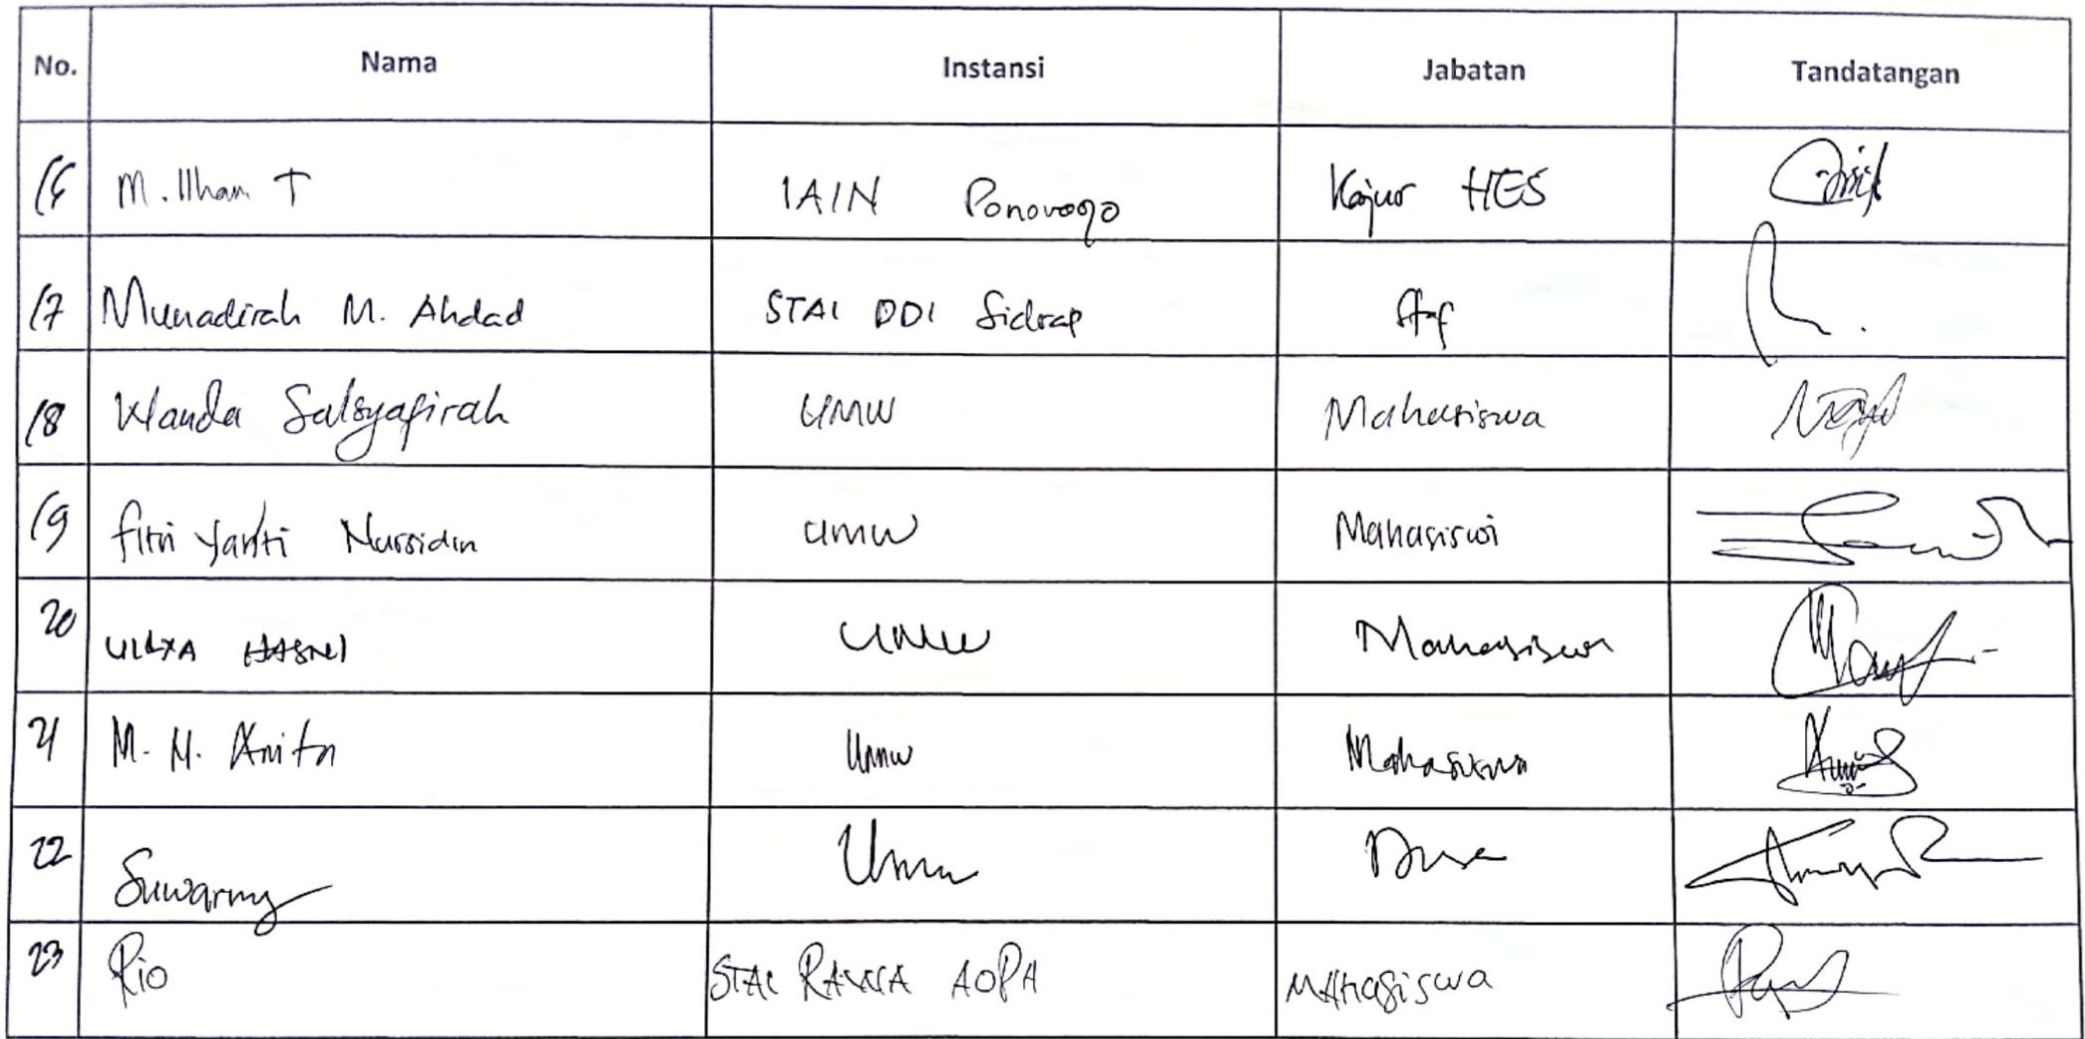 No. Nama Instansi Jabatan Tandatangan
16 M. Ilham T IAIN Ponorogo Kajur HES
17 Munadirah M. Ahdad STAI DDI Sidrap Staf
18 Wanda Salsyafirah UMW Mahasiswa
19 Fitri Yanti Nursidin UMW Mahasiswi
20 HASNI UMW Mahasiswa
21 M. H. Anita UMW Mahasiswa
22 Suwarny
23 Rio STAI RAWA AOPA MAHASiswa